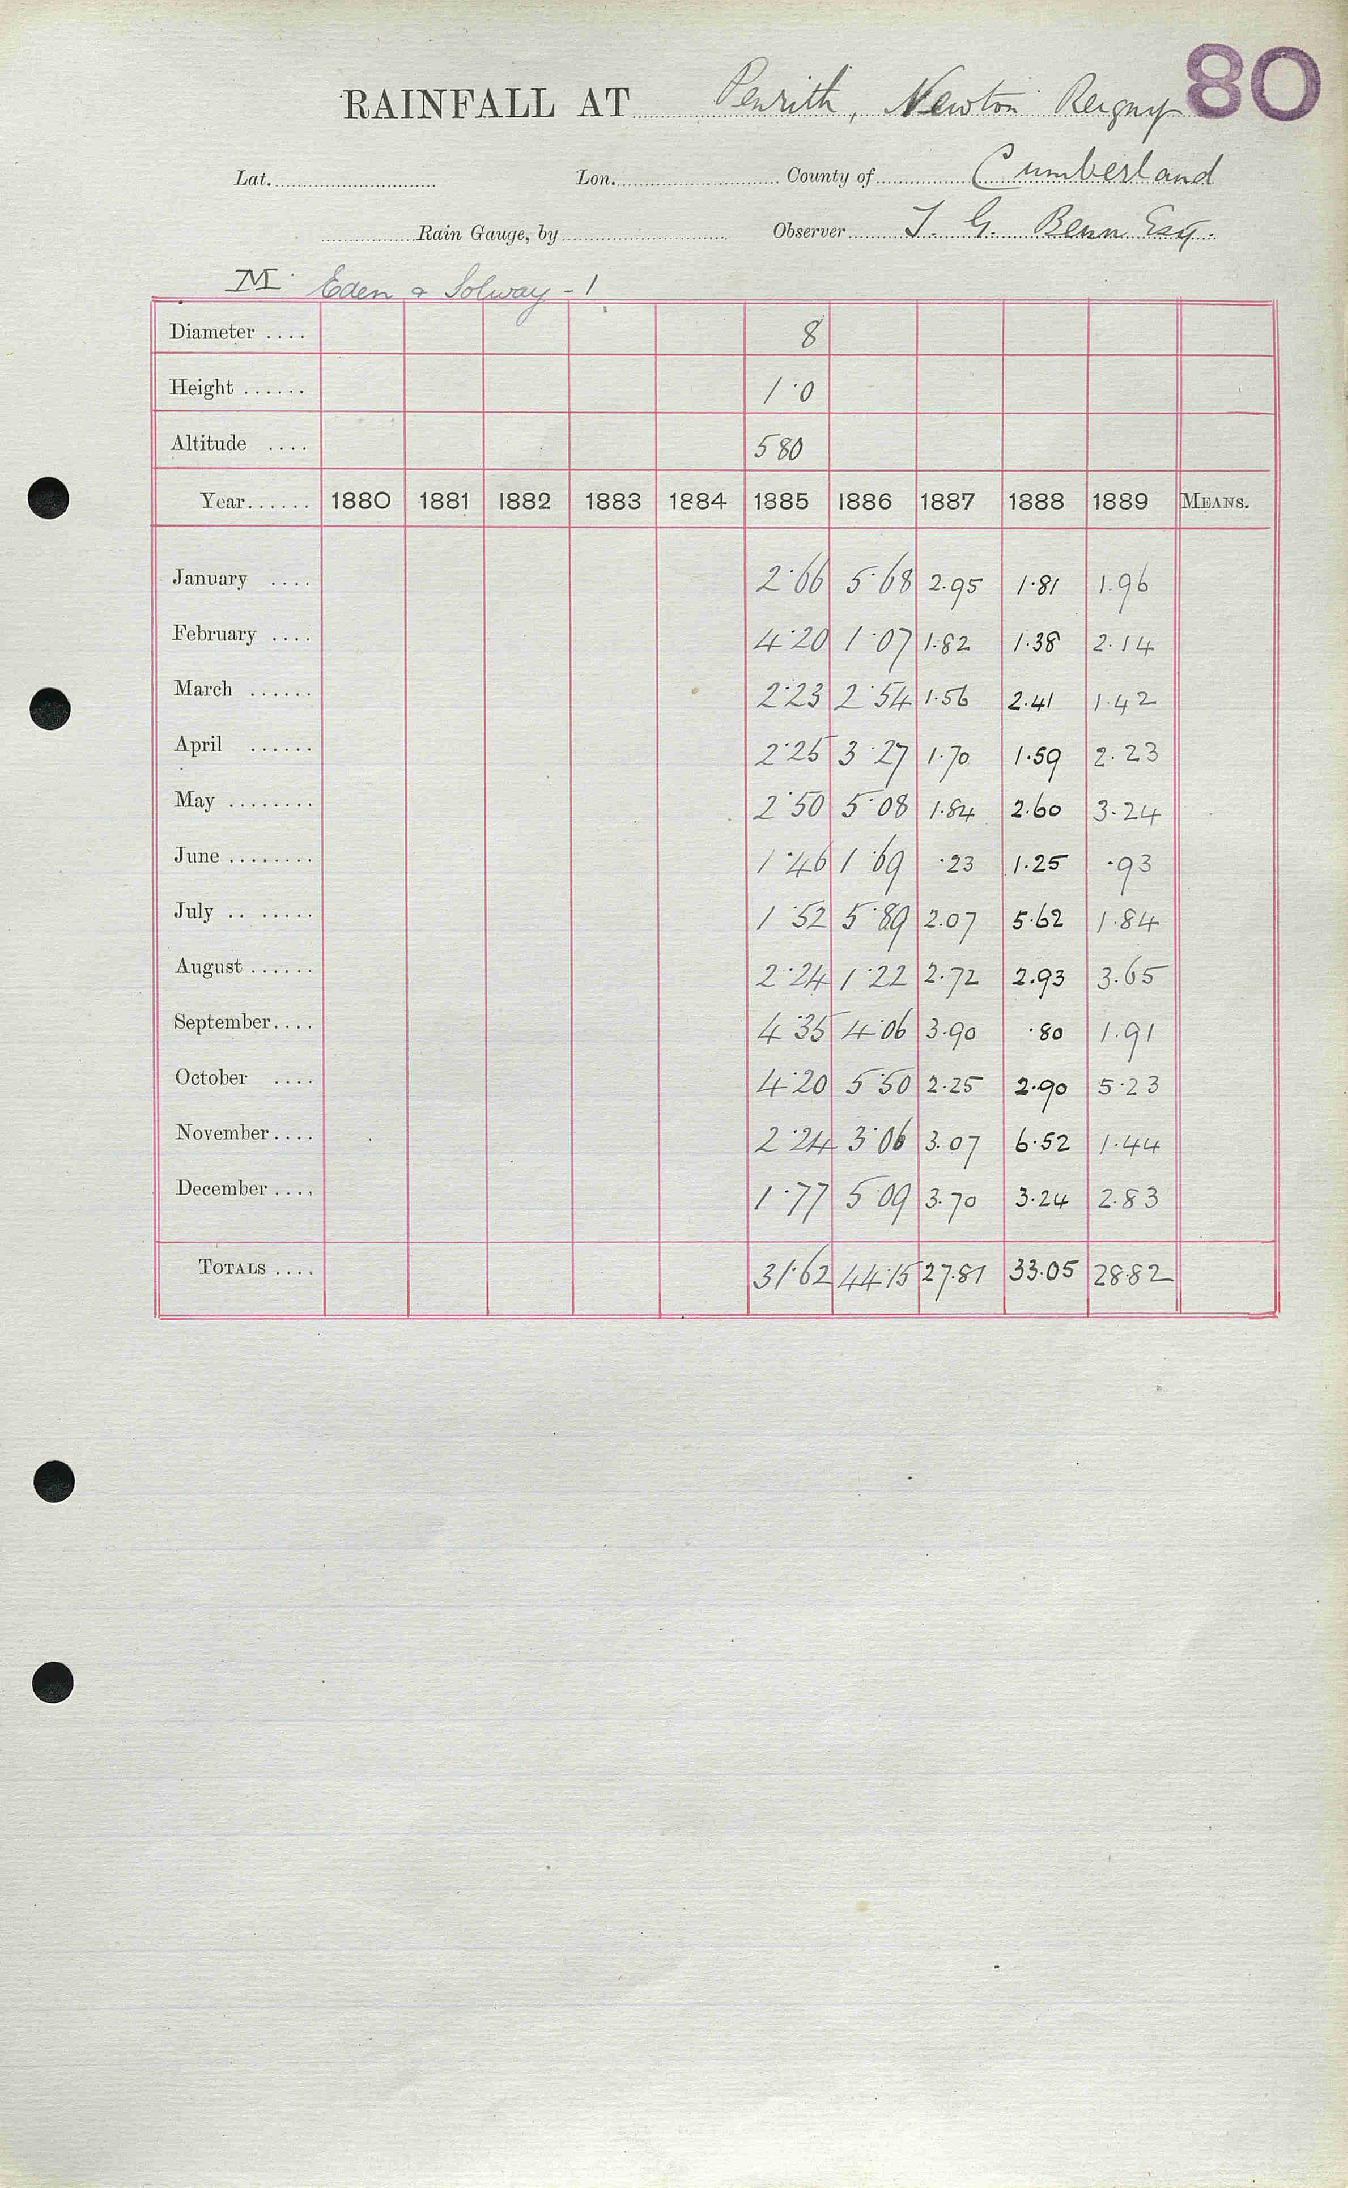 80
RAINFALL AT Penrith, Newton Reigny
Lat. Lon. County of Cumberland
Rain Gauge, by Observer T. G. Benn Esq.
M Eden & Solway - 1
Diameter .... 8
Height ...... 1·0
Altitude .... 580
Year...... 1880 1881 1882 1883 1884 1885 1886 1887 1888 1889 MEANS.
January .... 2·66 5·68 2.95 1·81 1.96
February .... 4·20 1·07 1.82 1·38 2.14
March ...... 2·23 2·54 1·56 2.41 1.42
April ...... 2·25 3·27 1.70 1·59 2.23
May ........ 2·50 5·08 1.84 2.60 3.24
June ........ 1·46 1·69 ·23 1.25 ·93
July .. ..... 1·52 5·89 2.07 5·62 1.84
August ...... 2·24 1·22 2.72 2.93 3.65
September.... 4·35 4·06 3.90 ·80 1.91
October .... 4·20 5·50 2.25 2.90 5·23
November.... 2·24 3·06 3.07 6·52 1·44
December .... 1·77 5·09 3.70 3.24 2.83
TOTALS .... 31·62 44·15 27.81 33.05 28.82